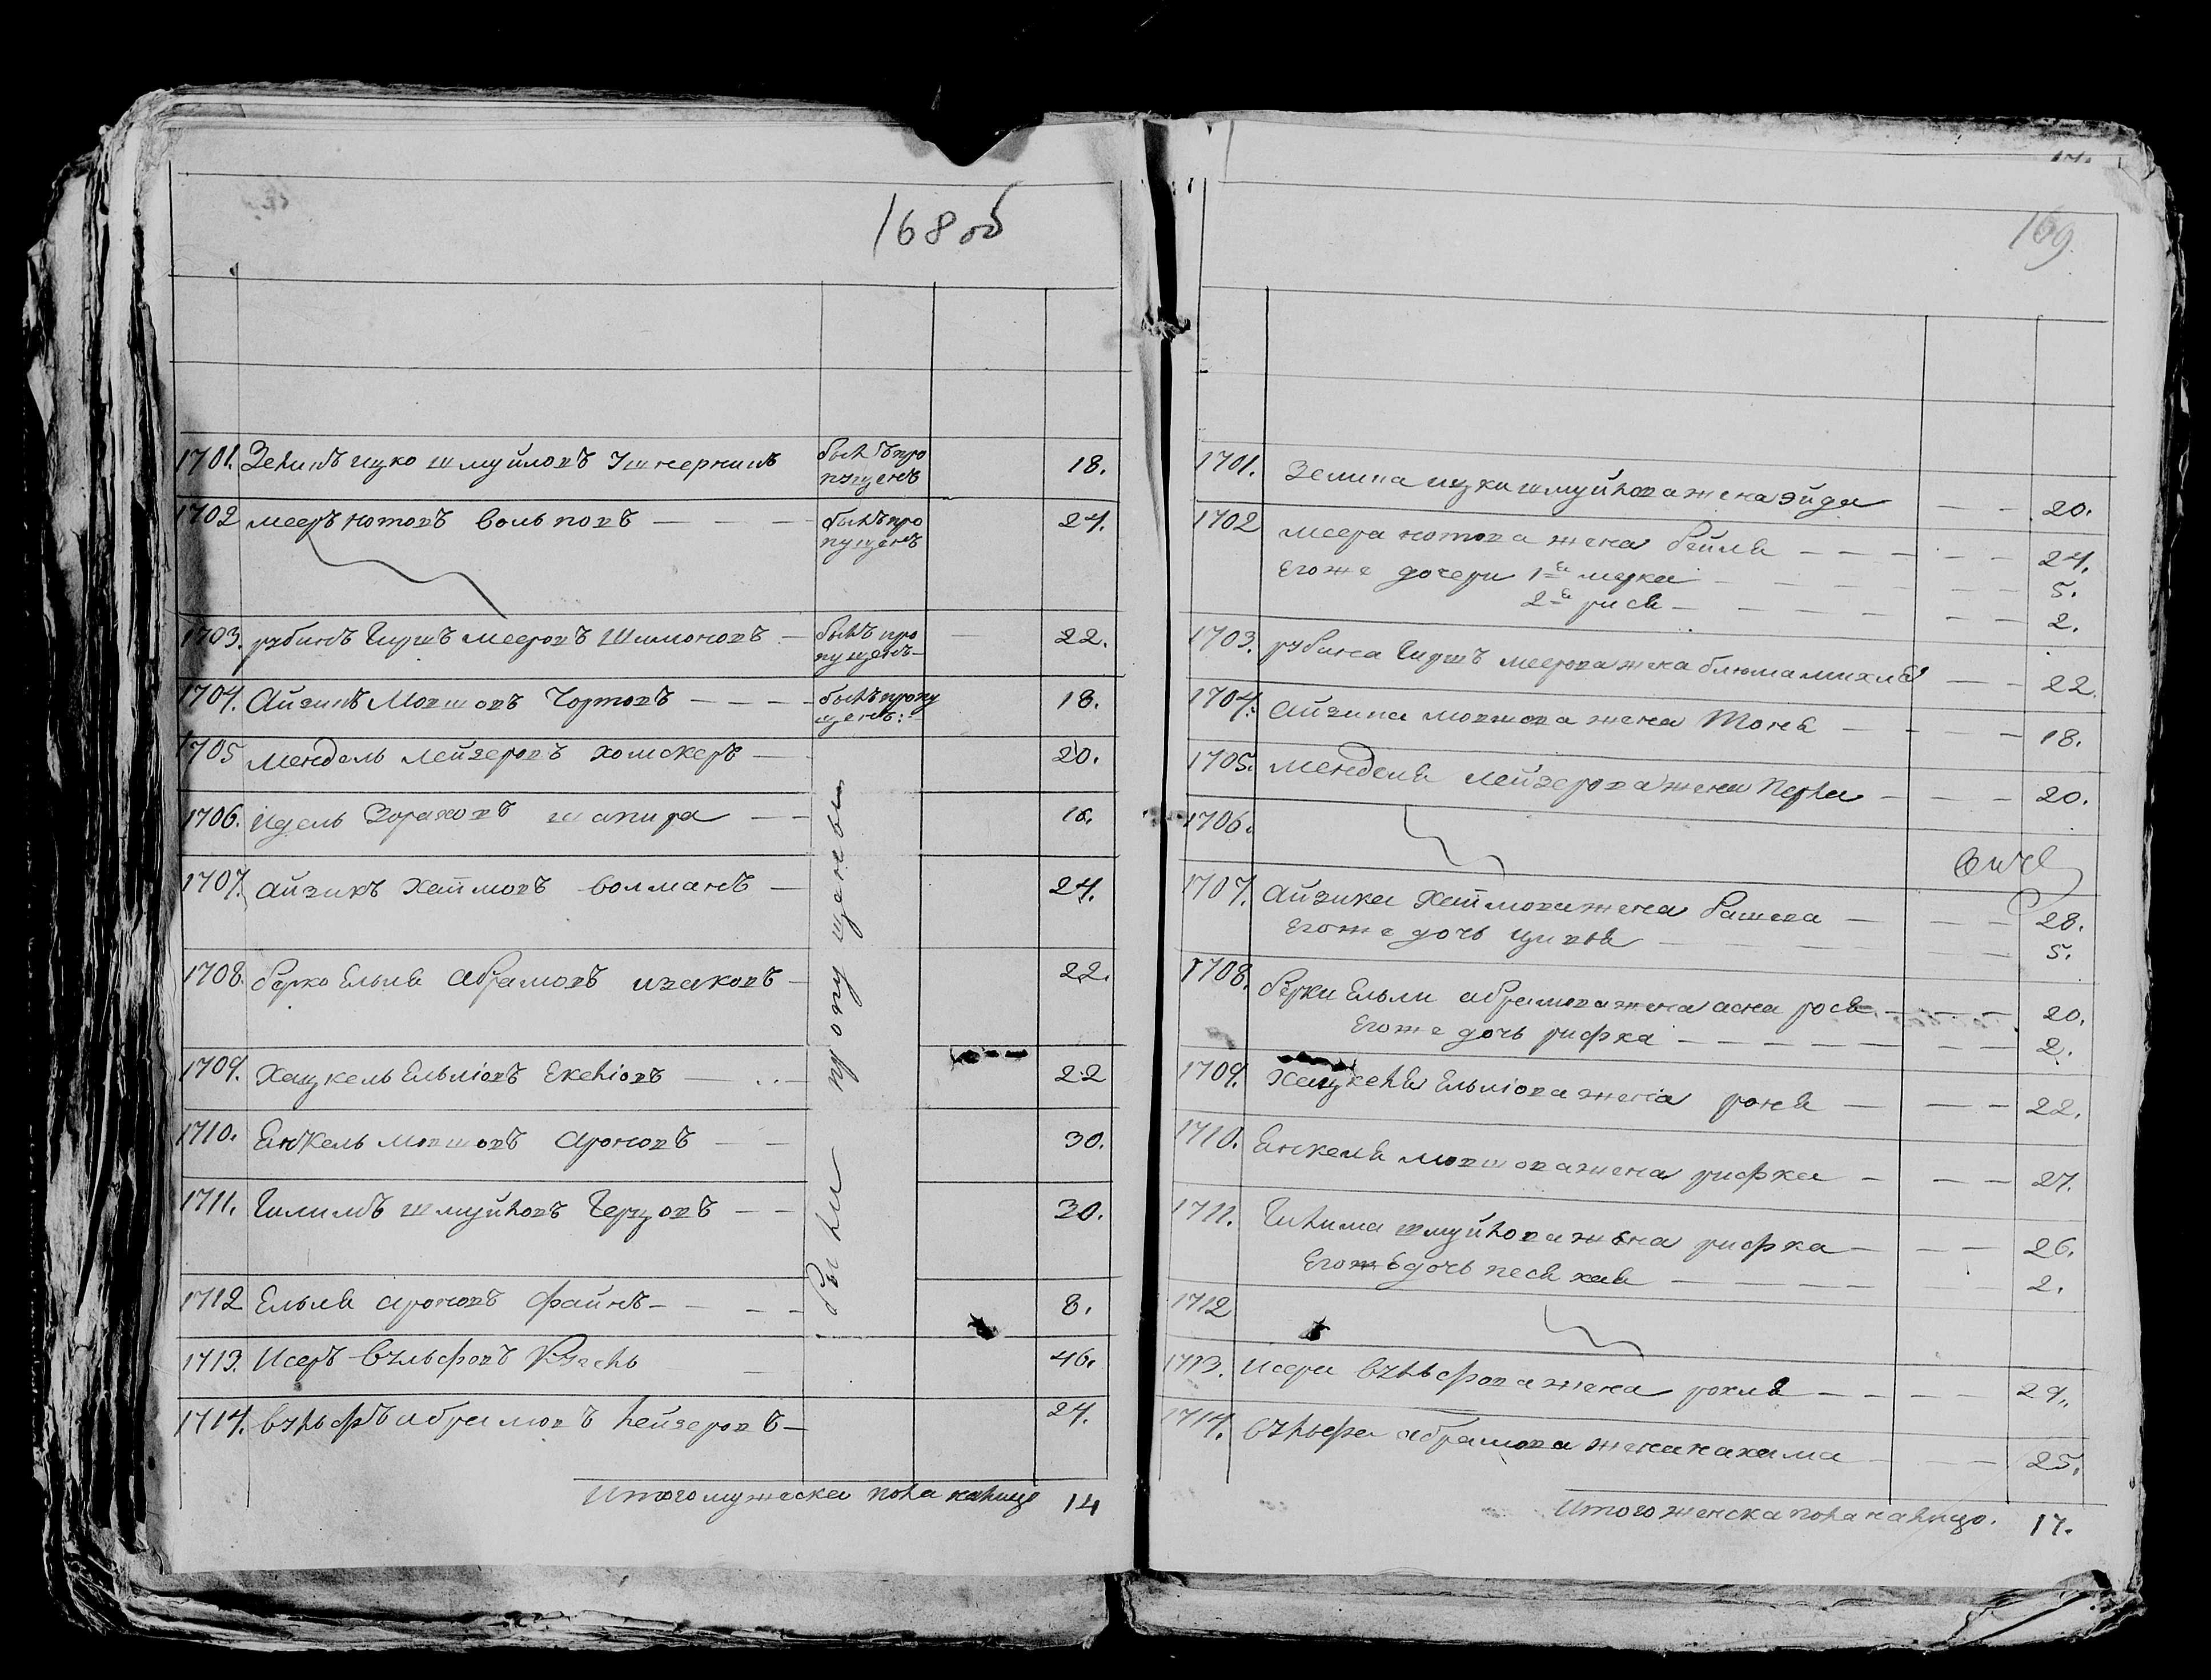 168 об
1701. Зелинъ ицко шмуйловъ
былъ про
пущенъ
18.
1702 мееръ нотовъ волповъ
былъ про
пущенъ
24.
1703. рубинъ Гиршъ мееровъ Шимоновъ
былъ про
пущенъ
22.
1704. Айзикъ Мовшовъ Чортовъ
былъ пропу
щенъ:
18.
1705 мендель лейзеровъ хомскеръ
20.
1706. идель Зораховъ шапира
1707. айзикъ Хаймовъ волманъ
24.
1708. берко Ельля абрамовъ изаковъ
22.
1709. Хацкель Ельліовъ Екеліовъ
22
1710. Енкель мовшовъ ароновъ
30.
1711. Гилимъ шмуйловъ Герцовъ
30.
1712 Ельля ароновъ файнъ
8.
1713. Исеръ вульфовъ
46.
1714. вульфъ абрамовъ лейзеровъ
24.
были пропущены
Итого мужеска пола налицо 14
169.
1701. Зелина ицки шмуйлова жена эйда
20.
1702 меера нотова жена бейля
24.
Его же дочери 1я мерка
5.
2я рися
2.
1703. рубина Гиршъ меерова жена блюма михля
22.
1704. айзика мовшова жена Тоня
18.
1705. менделя лейзерова жена Перла
20.
1706.
1707. айзика Хаймова жена башева
28.
Его же дочь ципья
5.
1708. берки Ельли абрамова жена асна рося
20.
Его же дочь рифка
2.
1709. Хацкеля Ельліова жена роня
22.
1710. Енкеля мовшова жена рифка
27.
1711. Гилима шмуйлова жена рифка
26.
Его же дочь песя хая
2.
1712
1713. исера вульфова жена рохля
29.
1714. вульфа абрамова жена нахама
25.
Итого женска пола налицо. 17.